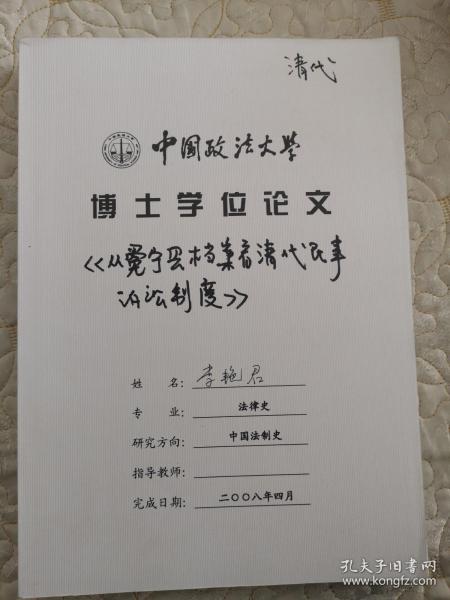 清代
中国政法大学
博士学位论文
《从冕宁县档案看清代民事
诉讼制度》
姓 名：李艳君
专 业：法律史
研究方向：中国法制史
指导教师：
完成日期：二〇〇八年四月
孔夫子旧书网
www.kongfz.com